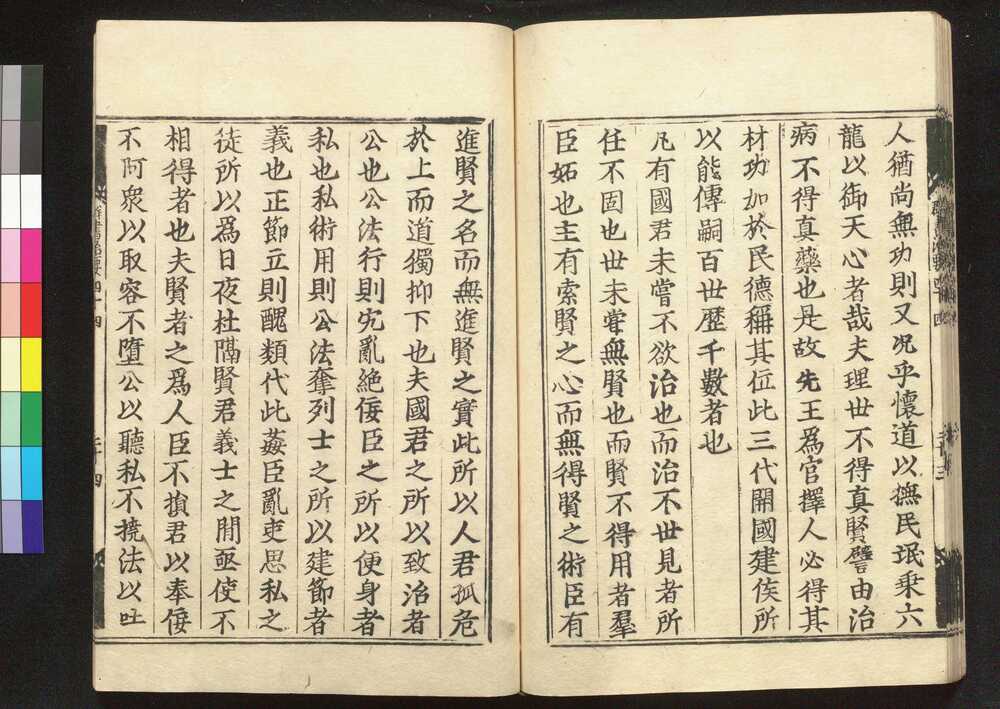 人猶尚無功則又况乎懷道以撫民氓乗六
龍以御天心者哉夫理世不得真賢譬由治
病不得真藥也是故先王爲官擇人必得其
材功加於民德稱其位此三代開國建侯所
以能傳嗣百世歴千數者也
凡有國君未嘗不欲治也而治不世見者所
任不固也世未嘗無賢也而賢不得用者羣
臣妬也主有索賢之心而無得賢之術臣有
進賢之名而無進賢之實此所以人君孤危
於上而道獨抑下也夫國君之所以致治者
公也公法行則宄亂絶佞臣之所以便身者
私也私術用則公法奪列士之所以建節者
義也正節立則醜類代此姦臣亂吏思私之
徒所以爲日夜杜隔賢君義士之間亟使不
相得者也夫賢者之爲人臣不損君以奉佞
不阿衆以取容不墮公以聽私不撓法以吐
群書治要四十四
二十四